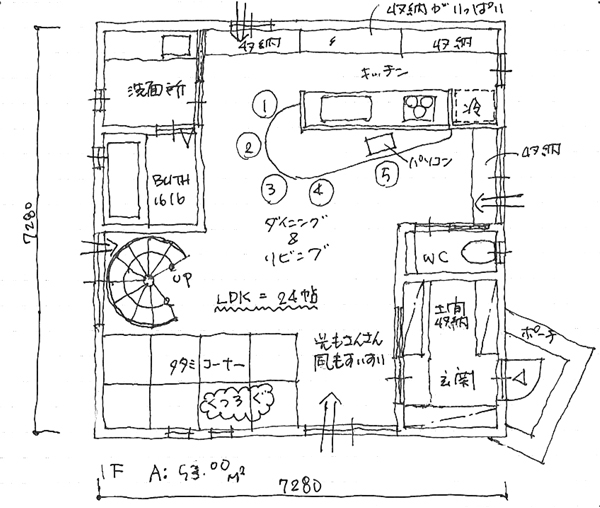 収納がいっぱい
収納
収納
キッチン
洗面所
冷
①
②
③
④
⑤
パソコン
収納
BATH
1616
ダイニング
&
リビング
WC
UP
LDK = 24帖
土間
収納
ポーチ
光もさんさん
風もすいすい
タタミコーナー
くつろぐ
玄関
7280
1F A: 53.00 M2
7280